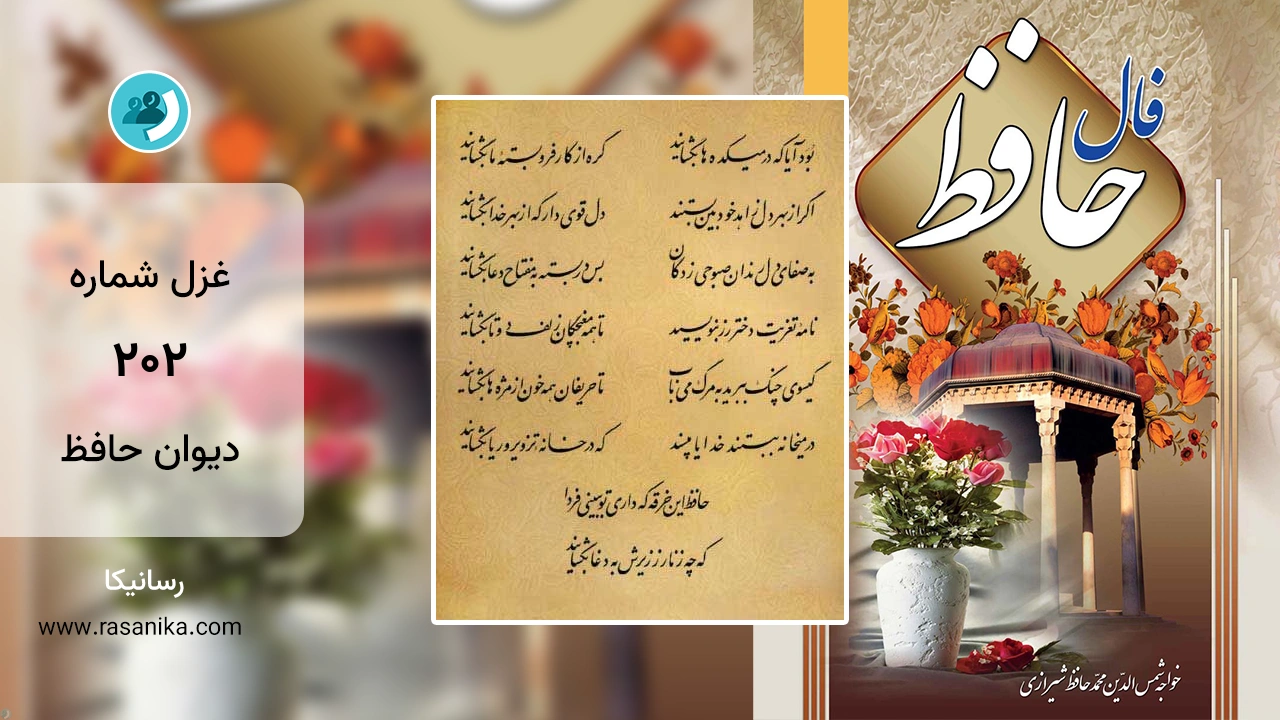 فال
حافظ
غزل شماره
۲۰۲
دیوان حافظ
رسانیکا
www.rasanika.com
بود آیا که در میکده ها بگشایند گره از کار فروبسته ما بگشایند
اگر از بهر دل زاهد خودبین بستند دل قوی دار که از بهر خدا بگشایند
به صفای دل رندان صبوحی زدگان بس در بسته به مفتاح دعا بگشایند
نامه تعزیت دختر رز بنویسید تا همه مغبچگان زلف دوتا بگشایند
گیسوی چنگ ببرید به مرگ می ناب تا حریفان همه خون از مژه ها بگشایند
در میخانه ببستند خدایا مپسند که در خانه تزویر و ریا بگشایند
حافظ این خرقه که داری تو ببینی فردا
که چه زنار ز زیرش به دغا بگشایند
خواجه شمس الدین محمد حافظ شیرازی